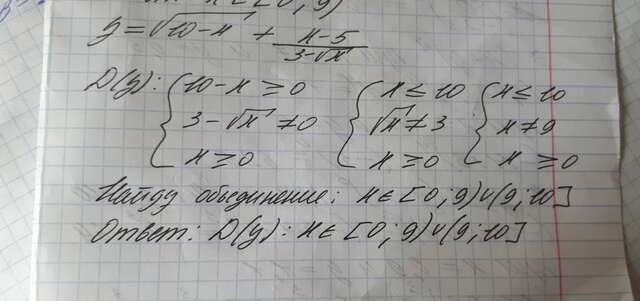 x ∈ [0; 9)
y = √10-x + x-5 / 3-√x
D(y): { 10-x ≥ 0 { x ≤ 10 { x ≤ 10
3-√x ≠ 0 √x ≠ 3 x ≠ 9
x ≥ 0 x ≥ 0 x ≥ 0
Найду объединение: x ∈ [0; 9) ∪ (9; 10]
Ответ: D(y): x ∈ [0; 9) ∪ (9; 10]